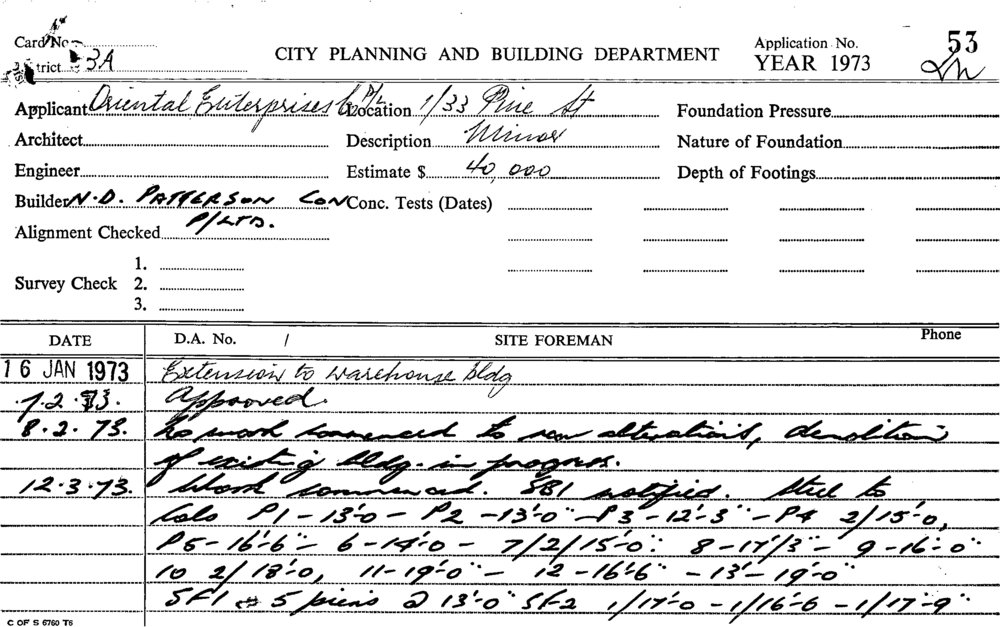 Card No.
District 3A
CITY PLANNING AND BUILDING DEPARTMENT
Application No. 53
YEAR 1973
Applicant Oriental Enterprises P/L Location 1/33 Pine St Foundation Pressure
Architect Description Minor Nature of Foundation
Engineer Estimate $ 40,000 Depth of Footings
Builder N.D. PATTERSON CON Conc. Tests (Dates)
P/LTD.
Alignment Checked
1.
Survey Check 2.
3.
DATE D.A. No. / SITE FOREMAN Phone
16 JAN 1973 Extension to warehouse bldg
7.2.73. Approved.
8.2.73. No work commenced to new alterations, demolition
of existing bldg. in progress.
12.3.73. Work commenced. SBI notified. Steel to
Cols P1-13'-0 - P2 -13'-0" - P3 -12'-3" - P4 2/15'-0,
P5-16'-6" - 6-14'-0 - 7/2/15'-0". 8-17'/3" - 9-16'-0"
10 2/18'-0, 11-19'-0" - 12-16'-6" -13'- 19'-0"
SF1 5 piers @ 13'-0" SF2 1/17'-0 - 1/16'-6 - 1/17'-9"
C OF S 6760 T6